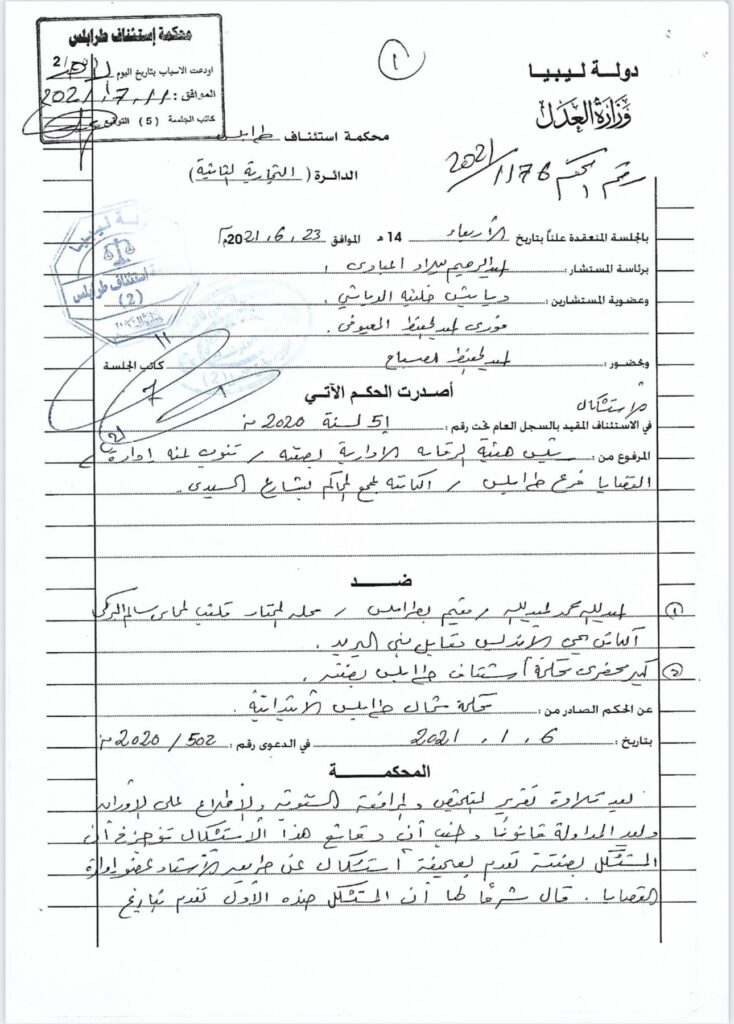 محكمة إستئناف طرابلس
اودعت الاسباب بتاريخ اليوم
الموافق : 11 . 7 . 2021
كاتب الجلسة (5) التوقيع
1
دولة ليبيا
وزارة العدل
رقم الحكم 1176 / 2021
محكمة استئناف طرابلس
الدائرة ( التجارية الثانية )
بالجلسة المنعقدة علناً بتاريخ الأربعاء 14 هـ الموافق 23 . 6 . 2021م
برئاسة المستشار : عبدالرحيم ميلاد
وعضوية المستشارين : خليفة
فوزي عبدالحفيظ
وبحضور : عبدالحفيظ مصباح كاتب الجلسة
دولة ليبيا
استئناف طرابلس
(2)
11
7
أصدرت الحكم الآتي
الاستشكال
في الاستئناف المقيد بالسجل العام تحت رقم : 51 لسنة 2020
المرفوع من : رئيس هيئة الرقابة الادارية بصفته / تنوب عنه إدارة
القضايا فرع طرابلس / الكائنة بمجمع المحاكم بشارع السيدي .
ضد
1 عبدالله محمد عبدالله / مقيم بطرابلس / محله المختار مكتب المحامي سالم
الكائن بحي الأندلس مقابل مبنى البريد .
2 كبير محضري محكمة استئناف طرابلس بصفته .
عن الحكم الصادر من : محكمة شمال طرابلس الابتدائية .
بتاريخ : 6 . 1 . 2021 في الدعوى رقم : 502 / 2020
المحكمة
بعد تلاوة تقرير التلخيص والمرافعة الشفوية والاطلاع على الأوراق
وبعد المداولة قانونا وحيث أن وقائع هذا الاستشكال توجز في أن
المستشكل بصفته تقدم بصحيفة استشكال عن طريق الأستاذ عضو إدارة
القضايا . قال شرحا لها أن المستشكل ضده الأول تقدم بتاريخ